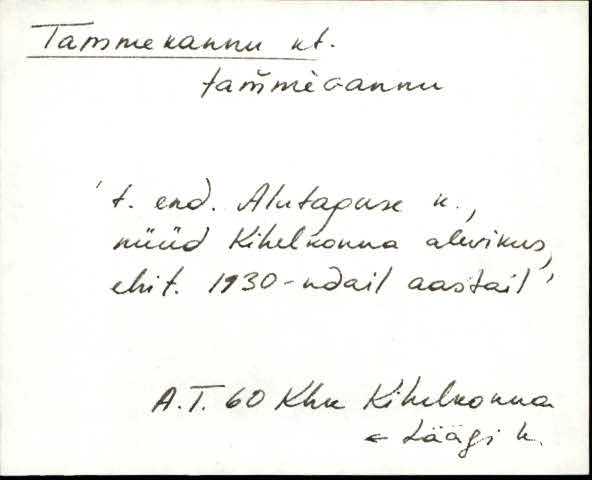 Tammekannu kt.
tam̆mèGannu
't. end. Alutaguse k.,
nüüd Kihelkonna alevikus,
ehit. 1930-ndail aastail'
A.T. 60 Khk Kihelkonna
← Läägi k.